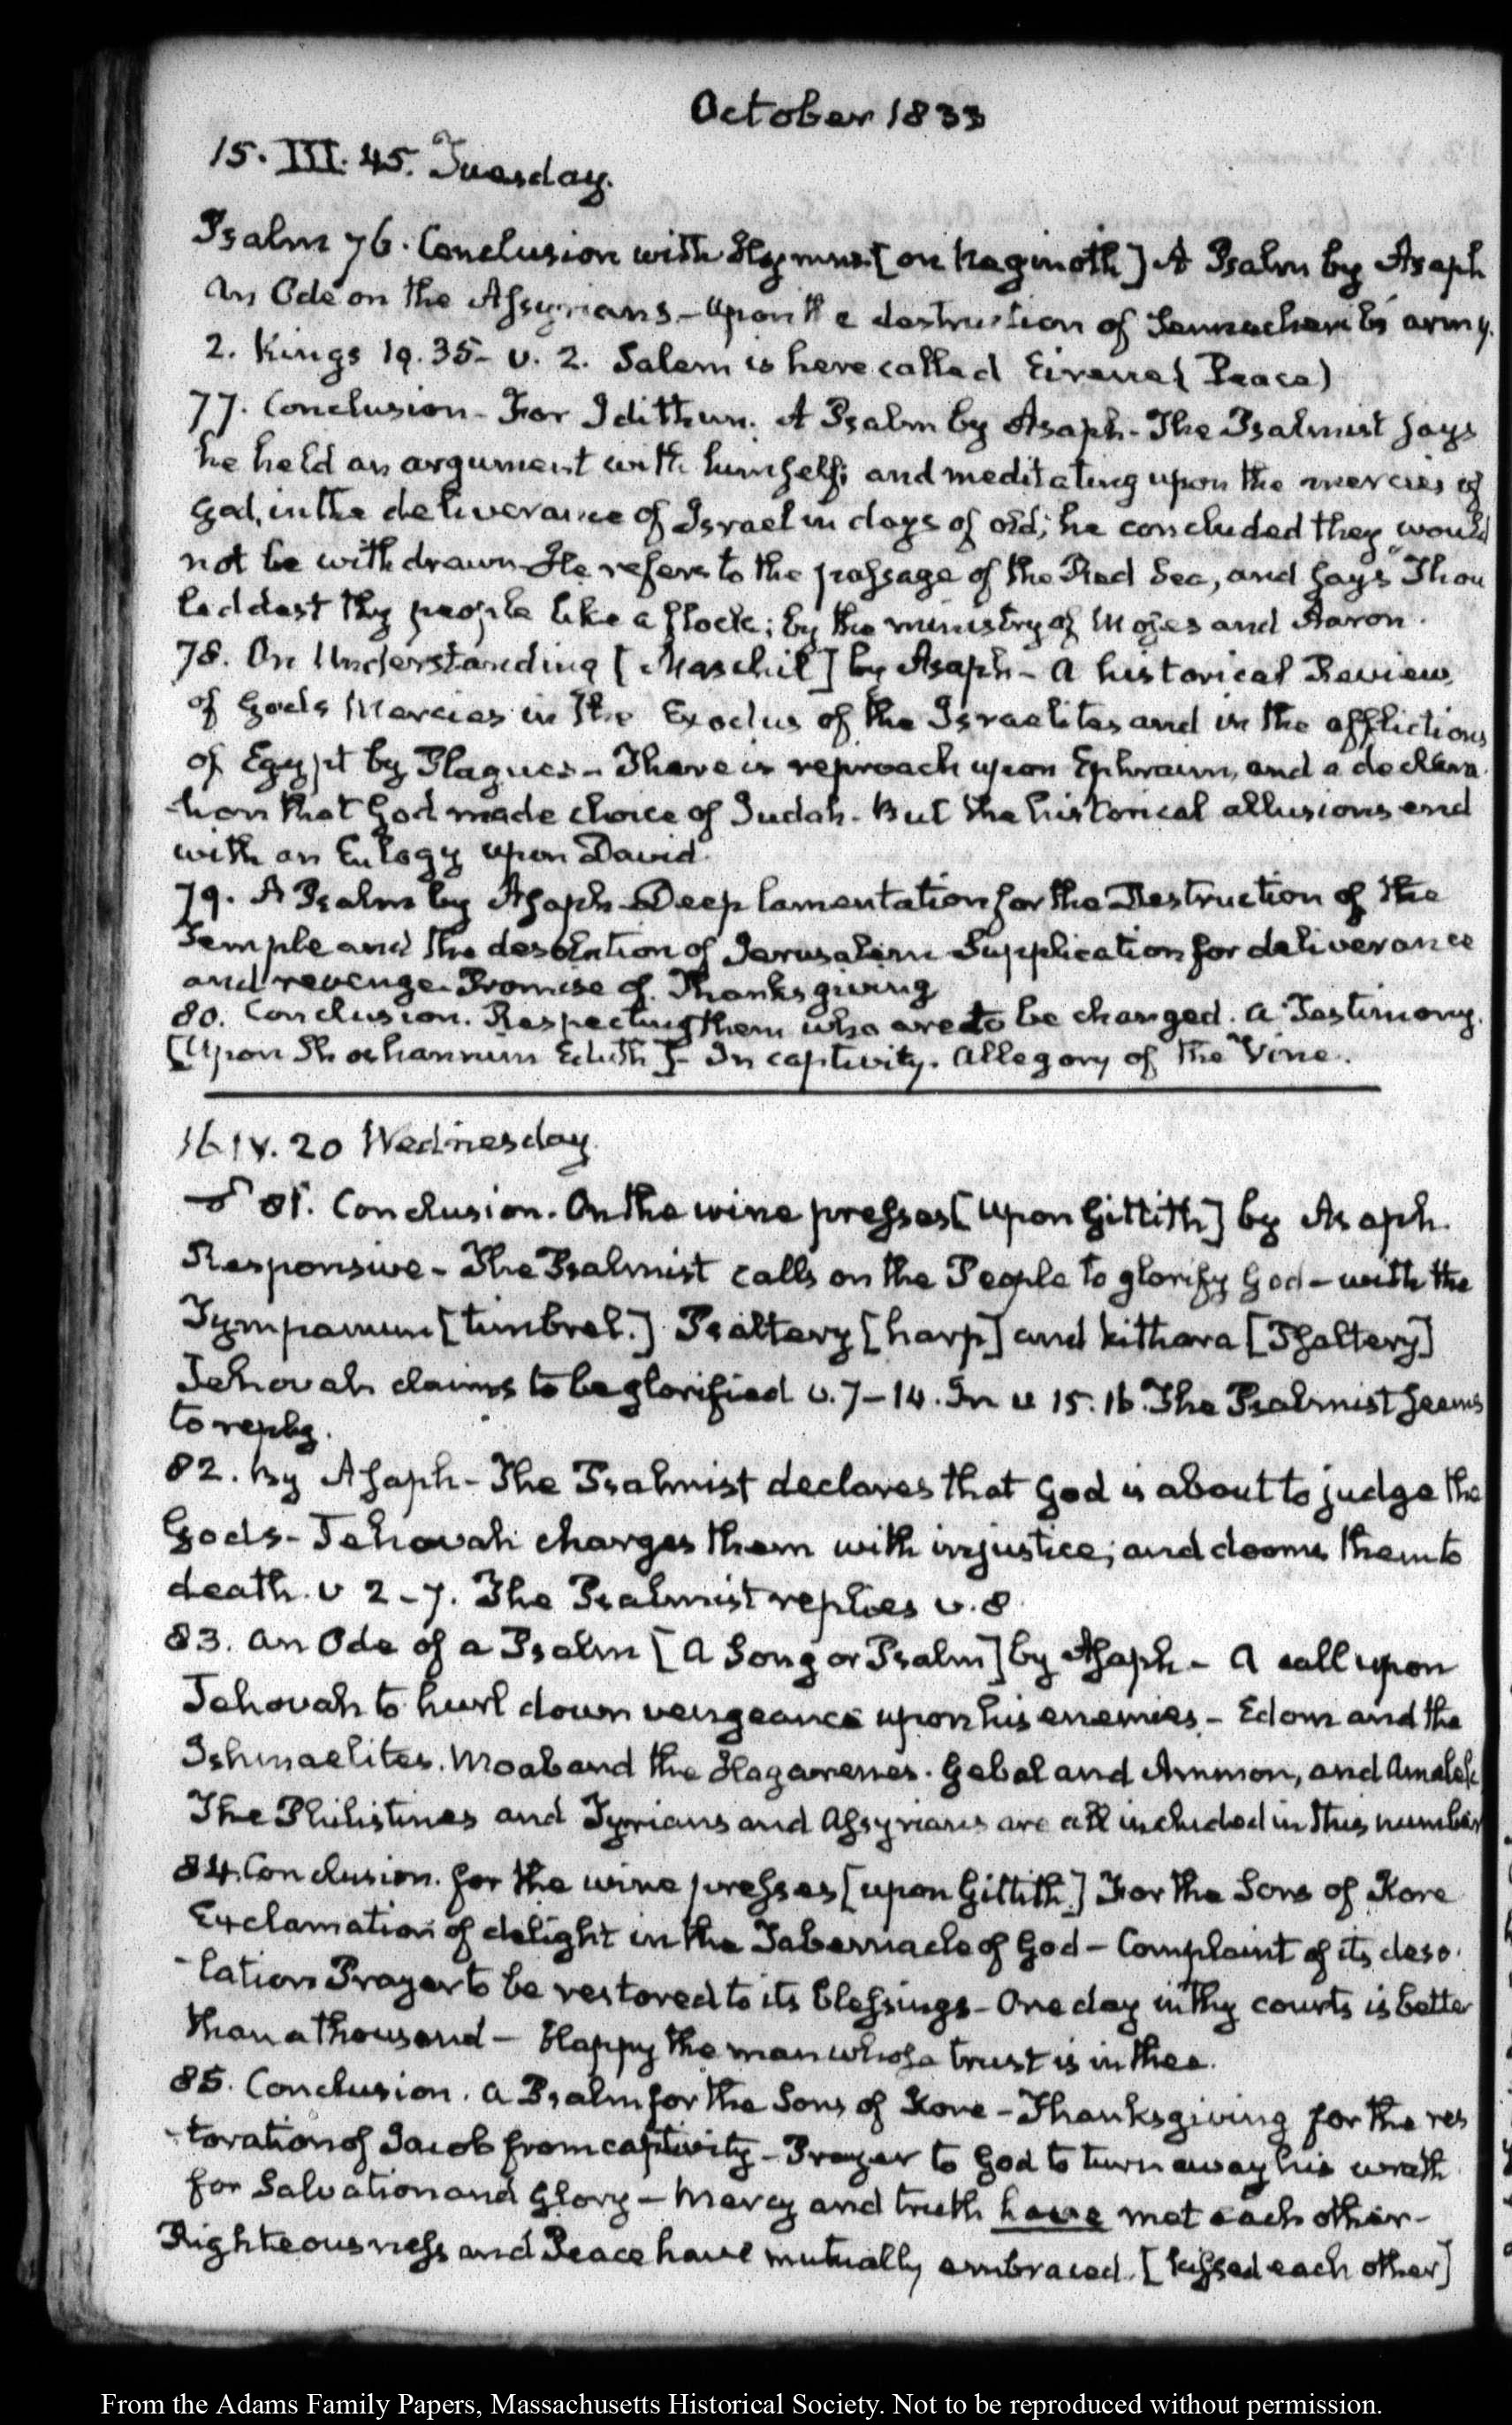 October 1833
15. III. 45. Tuesday.
Psalm 76. Conclusion with Hymns [on Neginoth] A Psalm by Asaph
An Ode on the Assyrians - Upon the destruction of Sennacherib's army.
2. Kings 19. 35 - v. 2. Salem is here called Eirene (Peace)
77. Conclusion - For Idithun. A Psalm by Asaph - The Psalmist says
he held an argument with himself; and meditating upon the mercies of
God, in the deliverance of Israel in days of old; he concluded they would
not be withdrawn - He refers to the passage of the Red Sea, and says "Thou
leddest thy people like a flock; by the ministry of Moses and Aaron.
78. On Understanding [Maschil] by Asaph - A historical Review
of Gods Mercies in the Exodus of the Israelites and in the afflictions
of Egypt by Plagues - There is reproach upon Ephraim, and a declara
tion that God made choice of Judah - But the historical allusions end
with an Eulogy upon David.
79. A Psalm by Asaph - Deep lamentation for the Destruction of the
Temple and the desolation of Jerusalem - Supplication for deliverance
and revenge - Promise of Thanksgiving
80. Conclusion. Respecting them who are to be changed. A Testimony.
[Upon Shoshannim Eduth] - In captivity. Allegory of the Vine.
16. IV. 20 Wednesday.
81. Conclusion. On the wine presses [upon Gittith] by Asaph.
Responsive - The Psalmist calls on the People to glorify God - with the
Tympanum [timbrel.] Psaltery [harp] and kithara [Psaltery]
Jehovah claims to be glorified v. 7-14. In v 15. 16. The Psalmist seems
to reply.
82. By Asaph - The Psalmist declares that God is about to judge the
Gods - Jehovah charges them with injustice; and dooms them to
death. v 2-7. The Psalmist replies v. 8
83. An Ode of a Psalm [A Song or Psalm] by Asaph - A call upon
Jehovah to hurl down vengeance upon his enemies - Edom and the
Ishmaelites. Moab and the Hagarenes. Gebal and Ammon, and Amalek
The Philistines and Tyrians and Assyrians are all included in this number
84. Conclusion. for the wine presses [upon Gittith.] For the Sons of Kore
Exclamation of delight in the Tabernacle of God - Complaint of its deso
-lation Prayer to be restored to its blessings - One day in thy courts is better
than a thousand - Happy the man whose trust is in thee.
85. Conclusion. A Psalm for the Sons of Kore - Thanksgiving for the res
-toration of Jacob from captivity - Prayer to God to turn away his wrath
for Salvation and Glory - Mercy and truth have met each other -
Righteousness and Peace have mutually embraced. [kissed each other]
From the Adams Family Papers, Massachusetts Historical Society. Not to be reproduced without permission.